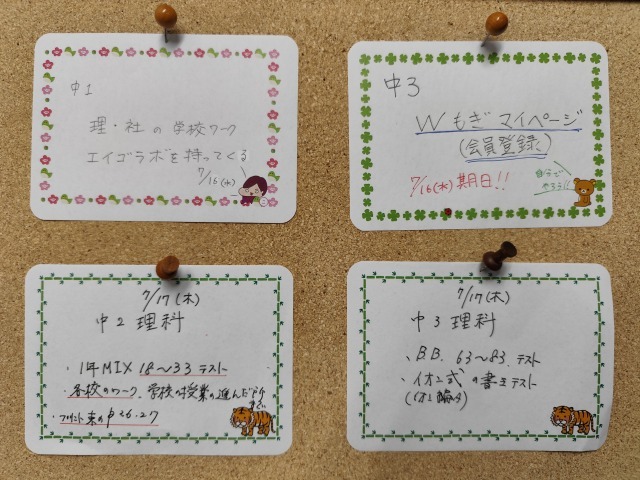 中1
理・社の学校ワーク
エイゴラボを持ってくる
7/16(水)
中3
Wもぎマイページ
(会員登録)
7/16(水)期日!!
自分で
やろう!!
7/17(木)
中2 理科
・1年MIX 18〜33 テスト
・各校のワーク、学校の授業の進んだ所
まで
・プリント束のP26.27
7/17(木)
中3 理科
・BB. 63〜83 テスト
・イオン式の書きテスト